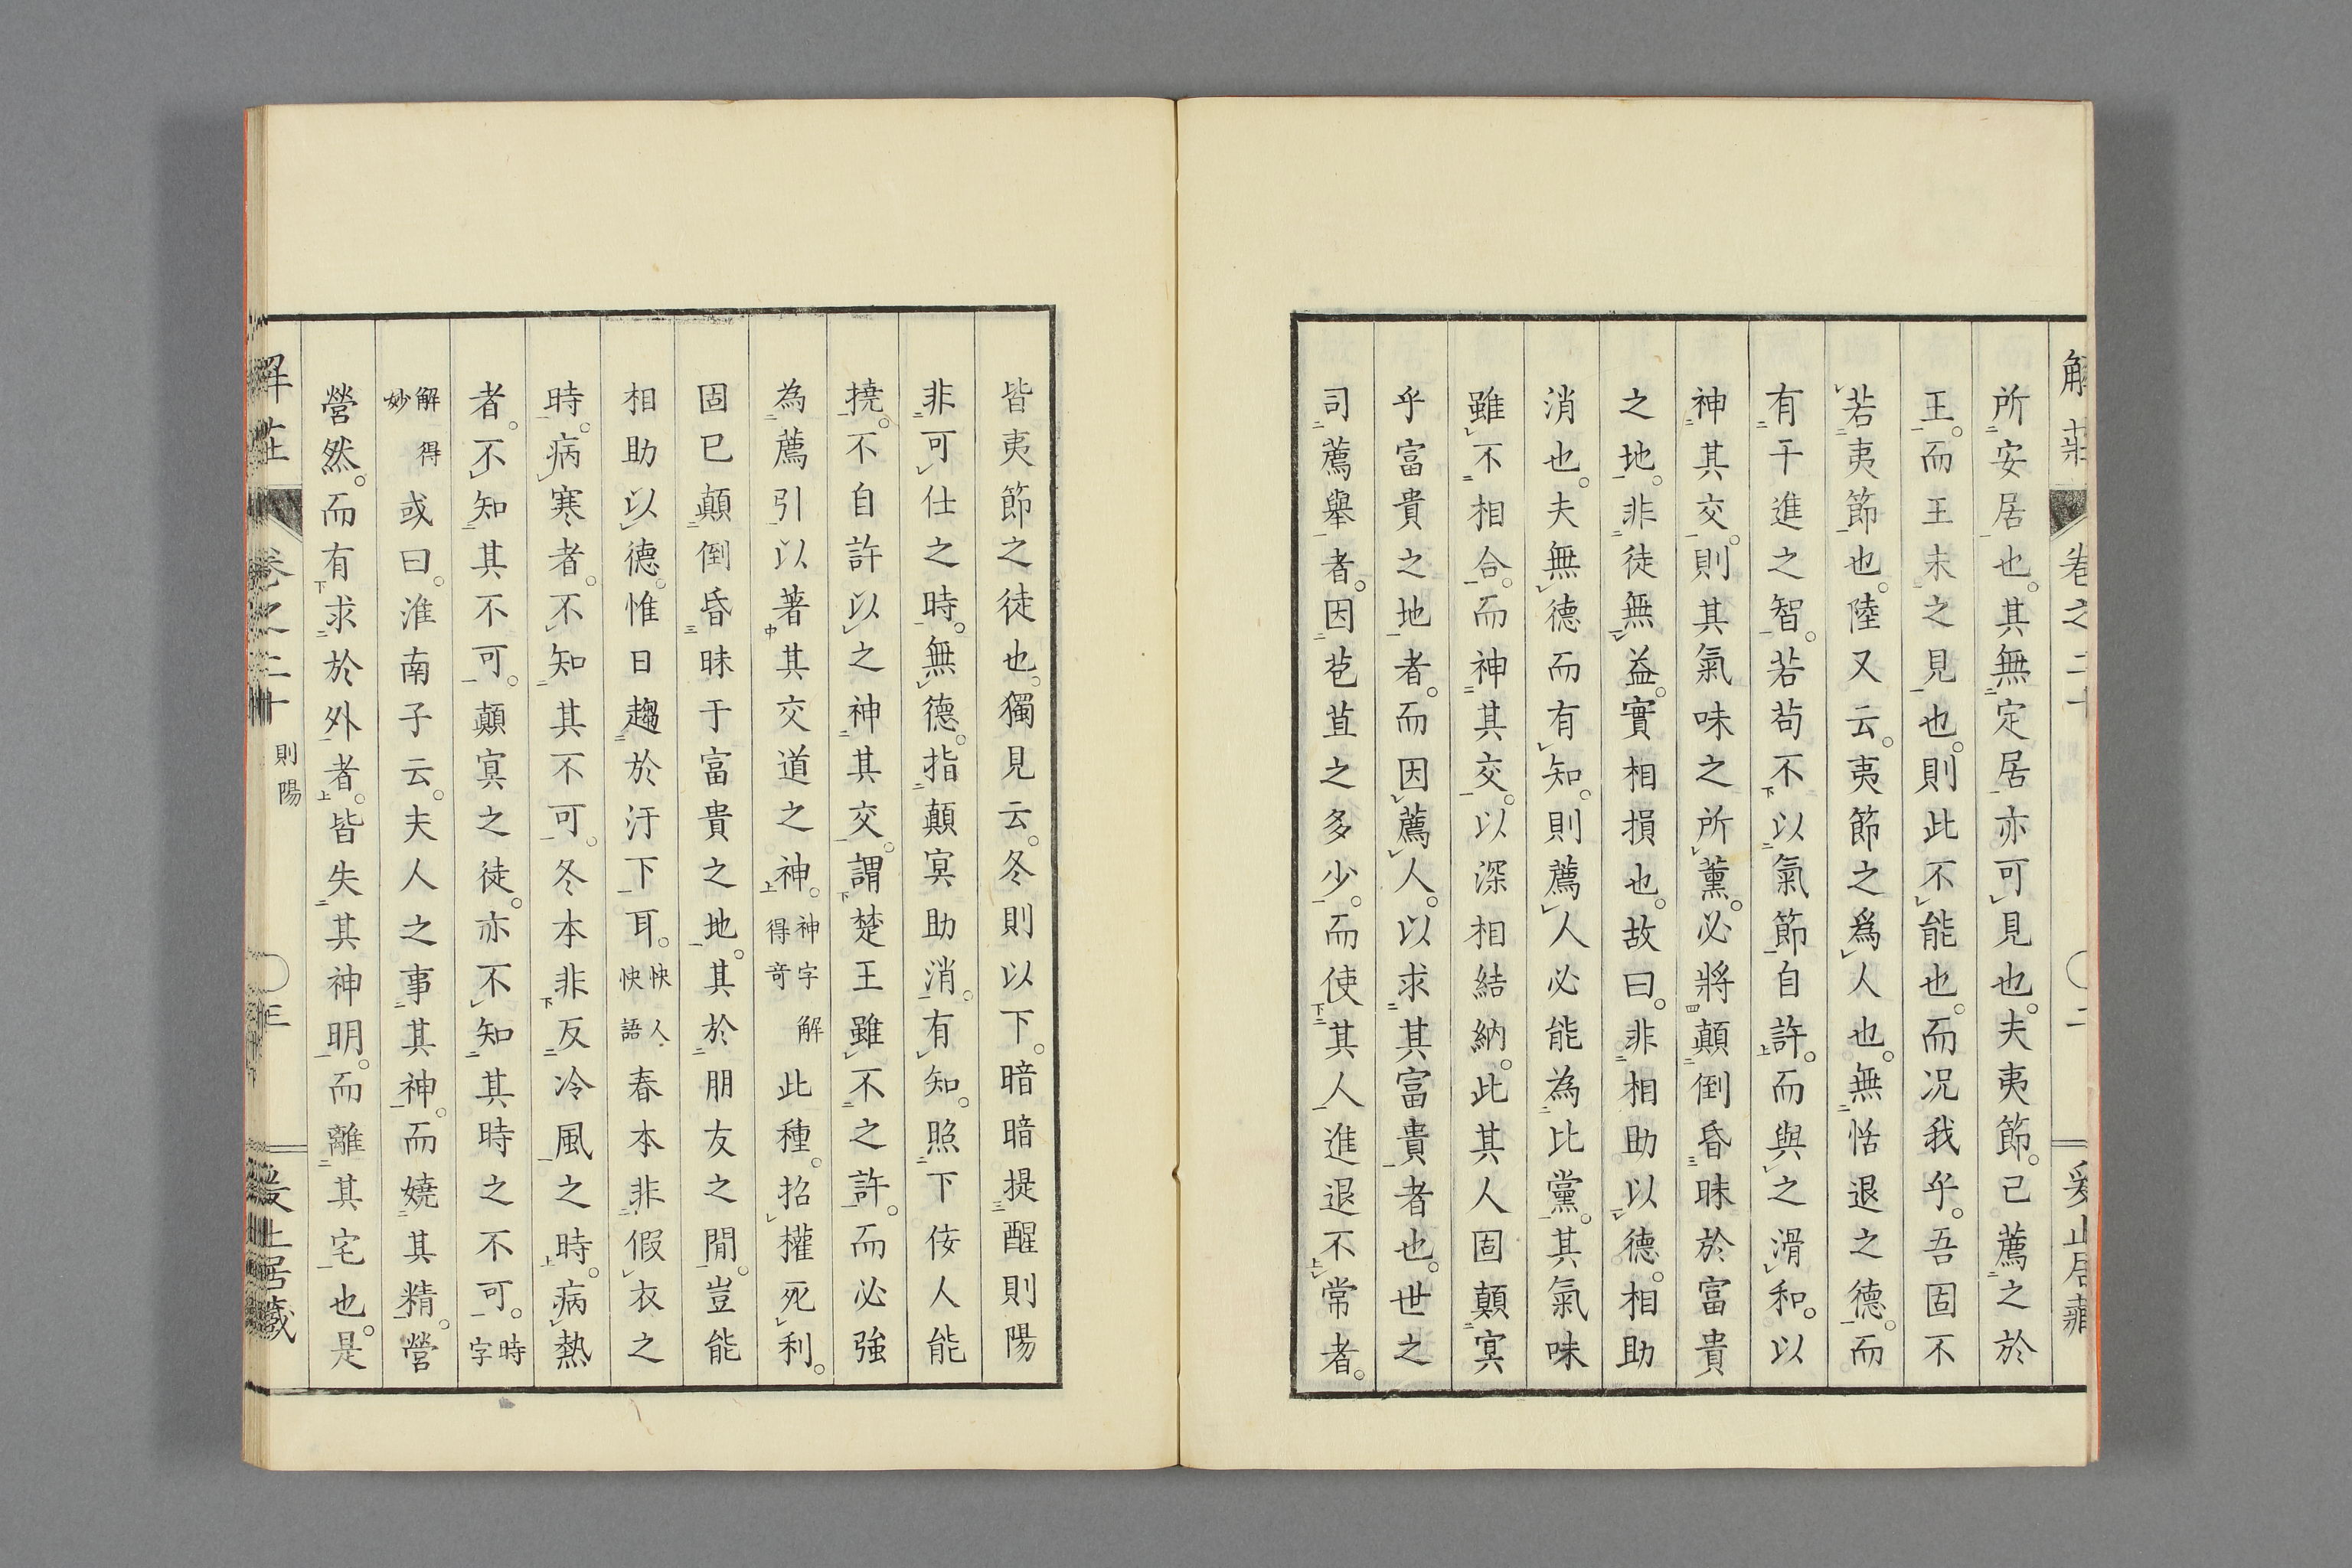 解莊 卷之二十 二 爰止居藏
所安居也。其無定居亦可見也。夫夷節。已薦之於
王。而王未之見也。則此不能也。而况我乎。吾固不
若夷節也。陸又云。夷節之爲人也。無恬退之德。而
有干進之智。若苟不以氣節自許。而與之滑和。以
神其交。則其氣味之所薰。必將顛倒昏昧於富貴
之地。非徒無益。實相損也。故曰。非相助以德。相助
消也。夫無德而有知。則薦人必能為比黨。其氣味
雖不相合。而神其交。以深相結納。此其人固顛冥
乎富貴之地者。而因薦人。以求其富貴者也。世之
司薦舉者。因苞苴之多少。而使其人進退不常者。
皆夷節之徒也。獨見云。冬則以下。暗暗提醒則陽
非可仕之時。無德。指顛冥助消。有知。照下佞人能
撓。不自許以之神其交。謂楚王雖不之許。而必強
為薦引以著其交道之神。神字解得奇 此種。招權死利。
固已顛倒昏昧于富貴之地。其於朋友之閒。豈能
相助以德。惟日趨於汙下耳。快人快語 春本非假衣之
時。病寒者。不知其不可。冬本非反冷風之時。病熱
者。不知其不可。顛冥之徒。亦不知其時之不可。時字
解得妙 或曰。淮南子云。夫人之事其神。而嬈其精。營
營然。而有求於外者。皆失其神明。而離其宅也。是
解莊 卷之二十 則陽 三 爰止居藏